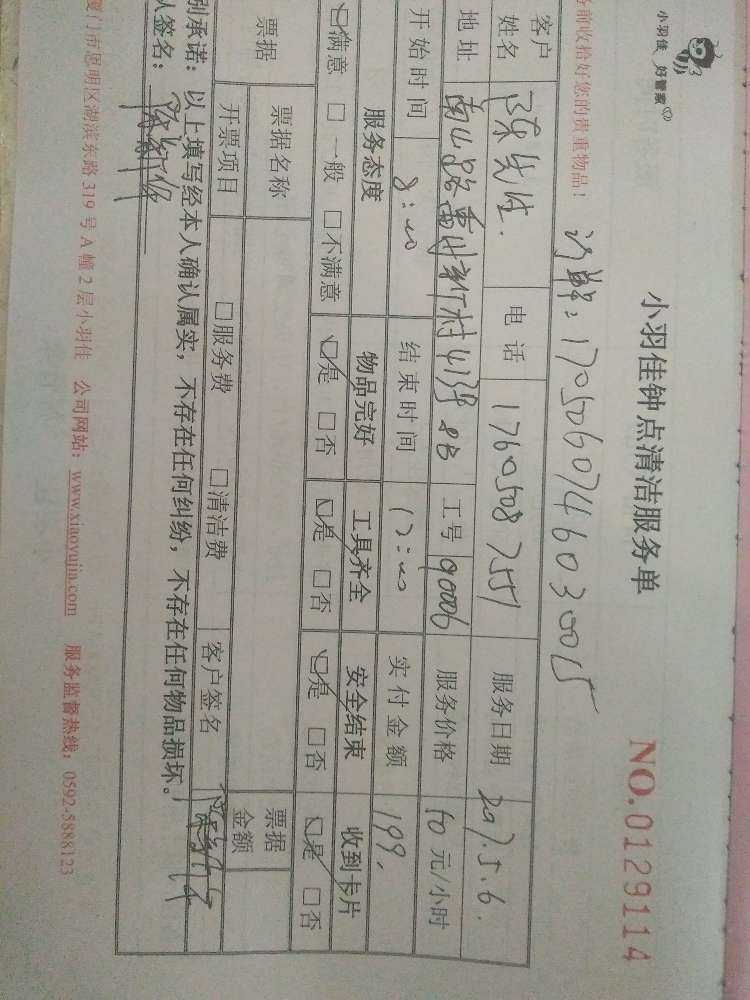 小羽佳 好管家
小羽佳钟点清洁服务单
NO.0129114
前收拾好您的贵重物品！
1705060746030015
客户姓名 陈先生. 电话 17605087551 服务日期 2017.5.6.
地址 南山路 新村413号 8B 工号 90006 服务价格 40元/小时
开始时间 8:00 结束时间 12:00 实付金额 199.
服务态度 物品完好 工具齐全 安全结束 收到卡片
☑满意 □一般 □不满意 ☑是 □否 ☑是 □否 ☑是 □否 ☑是 □否
票据 票据名称 票据金额
开票项目 □服务费 □清洁费 客户签名
别承诺：以上填写经本人确认属实，不存在任何纠纷，不存在任何物品损坏。
人签名：
厦门市思明区湖滨东路319号A幢2层小羽佳 公司网站：www.xiaoyujia.com 服务监督热线：0592-5888123